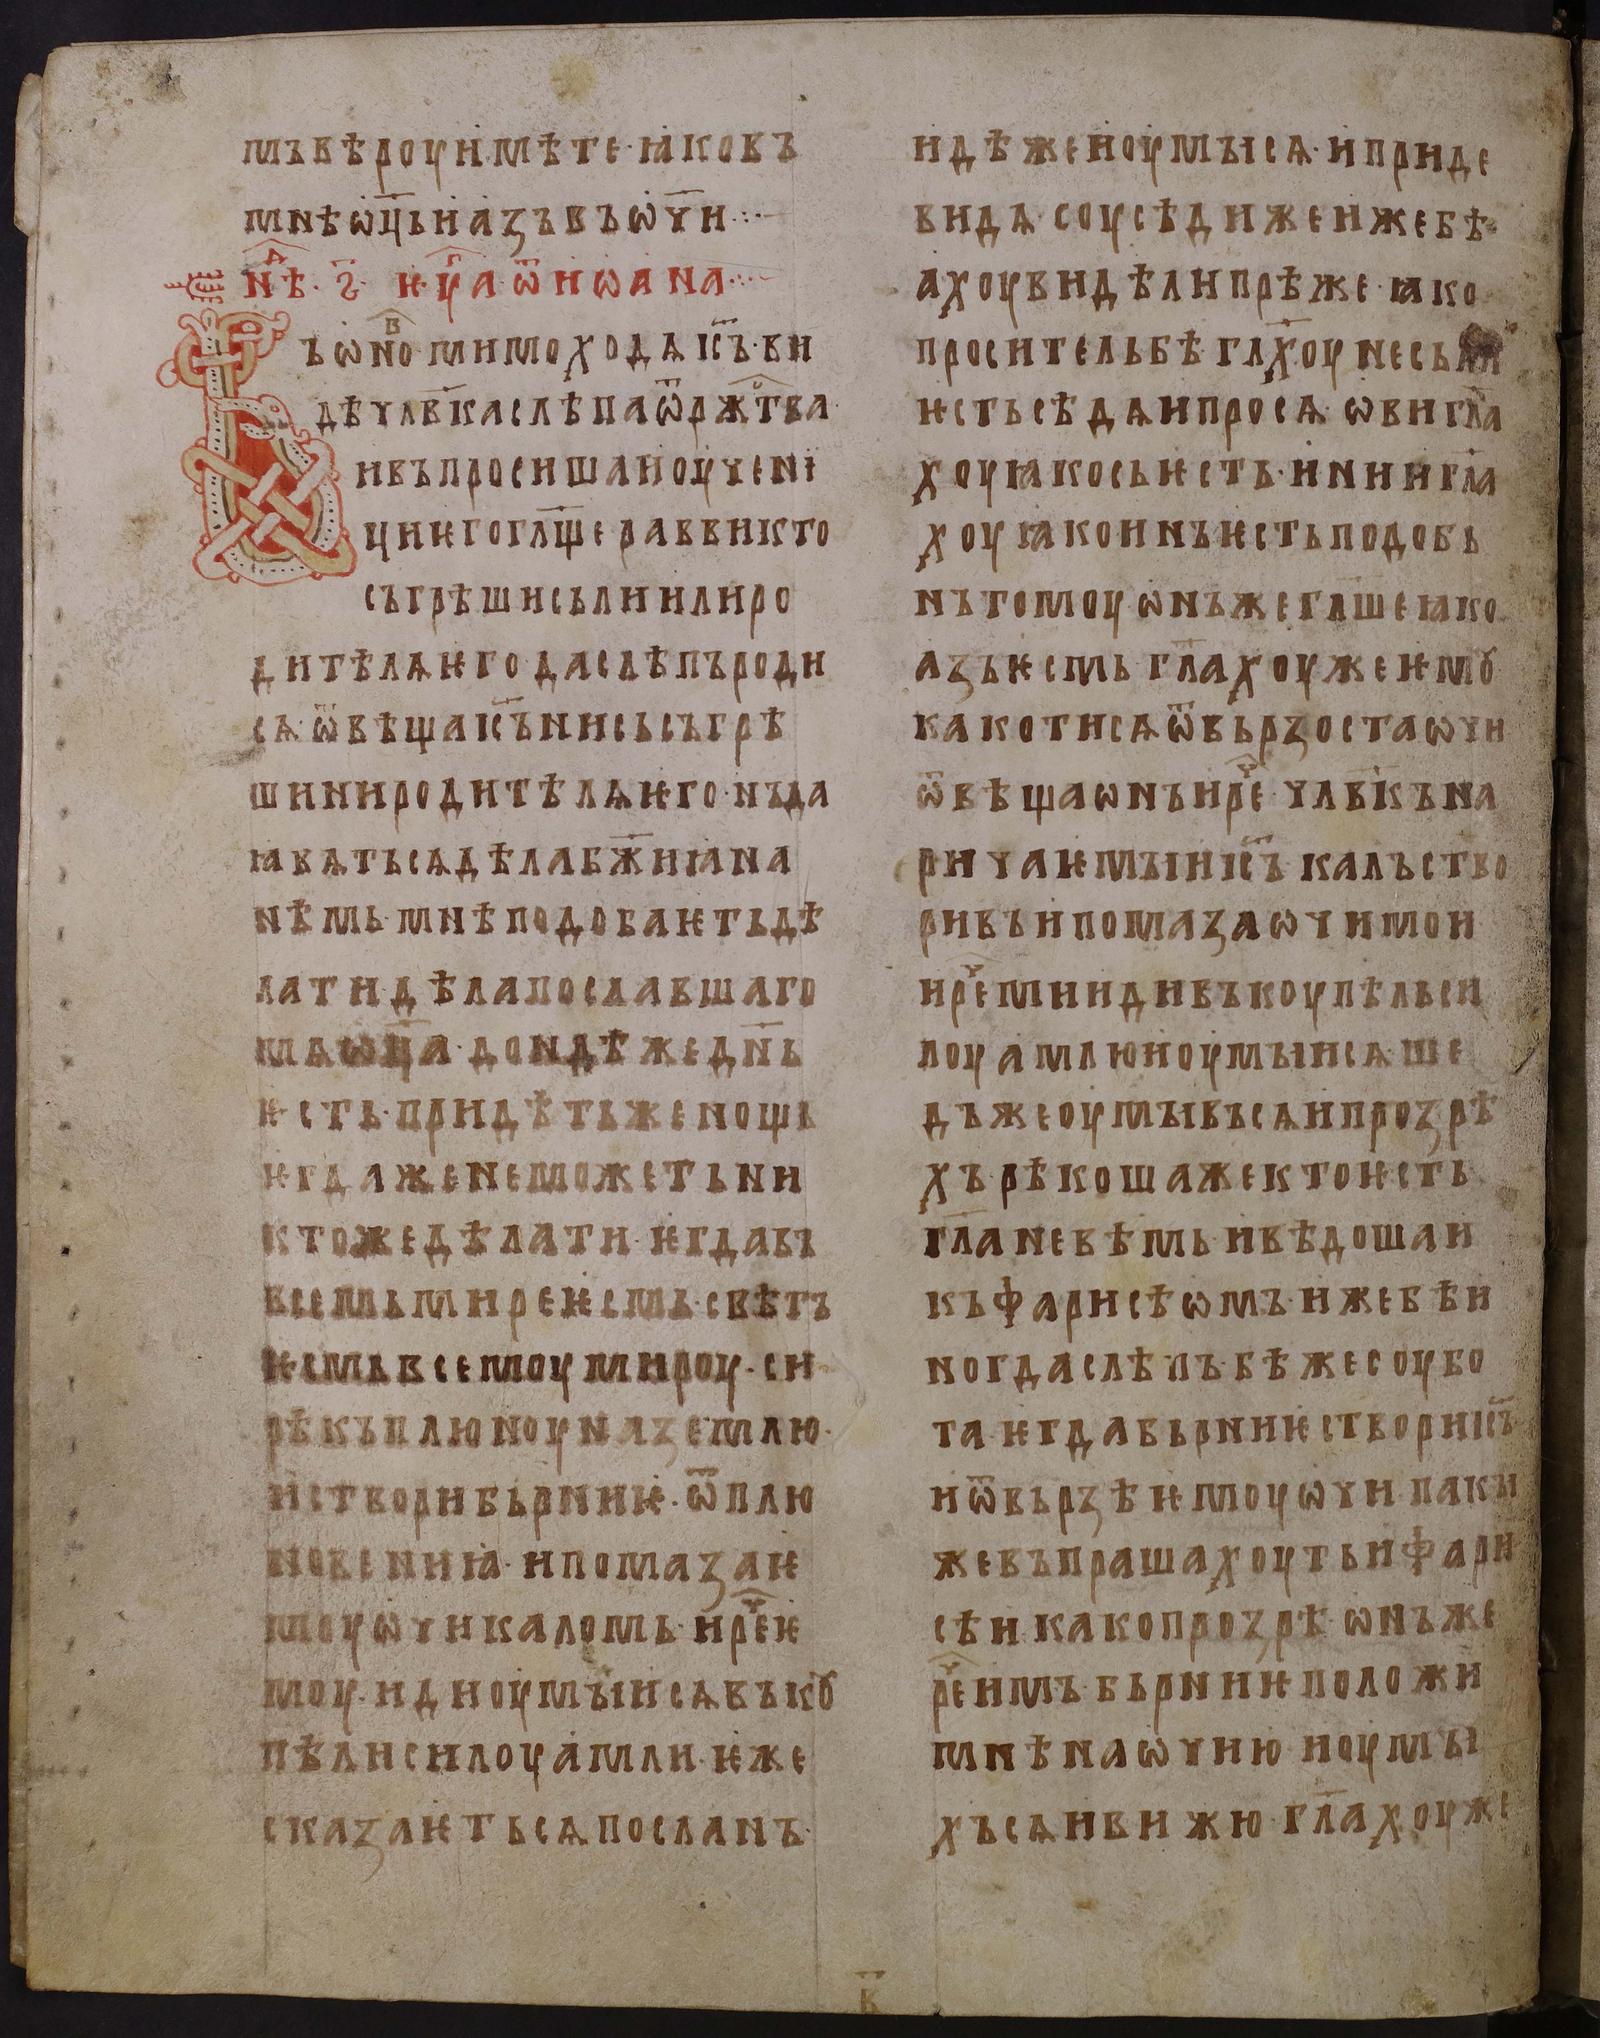 мъвѣроуимѣте·ꙗковъ
мнѣѡц҃ьиазъвъѡчи·:·
нⷣѣ·ѕ҃·ѥуⷢ҇аѿиѡана·:·
Въѡноⷡ҇мимоходѧі҃съ·ви
дѣчл҃вкаслѣпаѿржⷭ҇тва·
ивъпросишаиоучені
цииегогл҃щераввикто
съгрѣшисьлиилиро
дителѧѥгодаслѣпъроди
сѧ·ѿвѣщаі҃съниcьсъгрѣ
шинирodителѧѥго·нъда
ꙗвѧтьсѧдѣлаб҃жиꙗна
нѣмь·мнѣподобаѥтьдѣ
латидѣлапославшаго
мѧѡц҃а·дондѣжедн҃ь
ѥсть·придѣтьженощь
ѥгдаженеможетьни
ктожедѣлати·ѥгдавъ
всемьмиреѥсмь·свѣтъ
ѥсмьвсемоумироу·си
рѣкъплюноуназемлю·
истворибьрниѥ·ѿплю
новениꙗ·ипомазаѥ
моуѡчикаломь·иреⷱ҇ѥ
моу·идиоумыисѧвъкꙋ
пѣлисилоуамли·ѥже
сказаѥтьсѧпосланъ·
идѣжеиоумысѧ·ипридѐ
видѧ·соусѣдиижеижебѣ
ахоувидѣлипрѣже·ꙗко
просительбѣгл҃хоунесьли
ѥстьсѣдѧипросѧ·ѡвигл҃а
хоуꙗкосьѥсть·инииігл҃а
хоуꙗкоинъѥстьподобь
нътомоуѡнъжегл҃шеꙗко
азъѥсмьгл҃ахоужеѥмꙋ
какотисѧѿвьрзостаѡчи
ѿвѣщаѡнъиреⷱ҇чл҃вкъна
ричаѥмыиі҃съкалъство
ривъипомазаѡчимои
иреⷱ҇миидивъкоупѣльси
лоуамлюиоумыисѧше
дъжеоумывъсѧипрозрѣ
хъ·рѣкошажектоѥсть
гл҃аневѣмь·ивѣдошаи
къфарисѣѡмъ·ижебѣи
ногдаслѣпъ·бѣжесоубо
таѥгдабьрниѥствориі҃съ
иѿвьрзѣѥмоуѡчи·пакы
жевъпрашахоутьифари
сѣи·какопрозрѣ·ѡнъже
реⷱ҇имъ·бьрниѥположи
мнѣнаѡчию·иоумы
хъсѧивижю·гл҃ахоуже
к҃